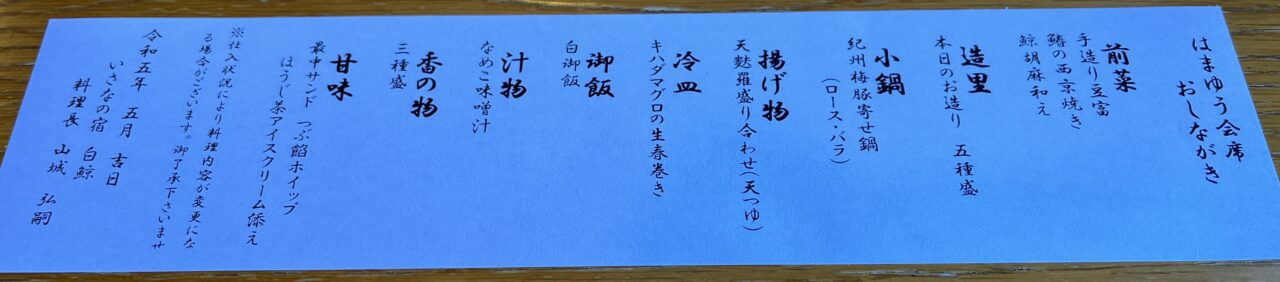 はまゆう会席
おしながき
前菜
手造り豆富
鰆の西京焼き
鯨胡麻和え
造里
本日のお造り　五種盛
小鍋
紀州梅豚寄せ鍋
（ロース・バラ）
揚げ物
天麩羅盛り合わせ（天つゆ）
冷皿
キハダマグロの生春巻き
御飯
白御飯
汁物
なめこ味噌汁
香の物
三種盛
甘味
最中サンド　つぶ餡ホイップ
ほうじ茶アイスクリーム添え
※仕入状況により料理内容が変更にな
る場合がございます。御了承下さいませ
令和五年　五月　吉日
いさなの宿　白鯨
料理長　山城　弘嗣